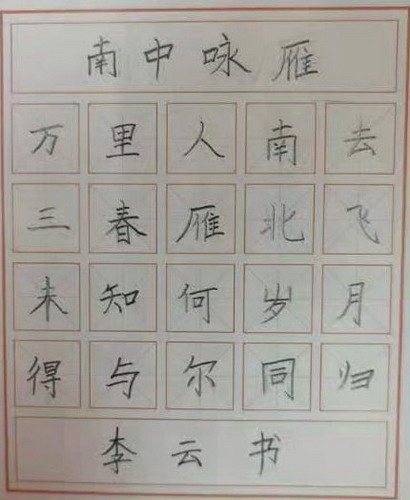 南中咏雁
万里人南去
三春雁北飞
未知何岁月
得与尔同归
李云书